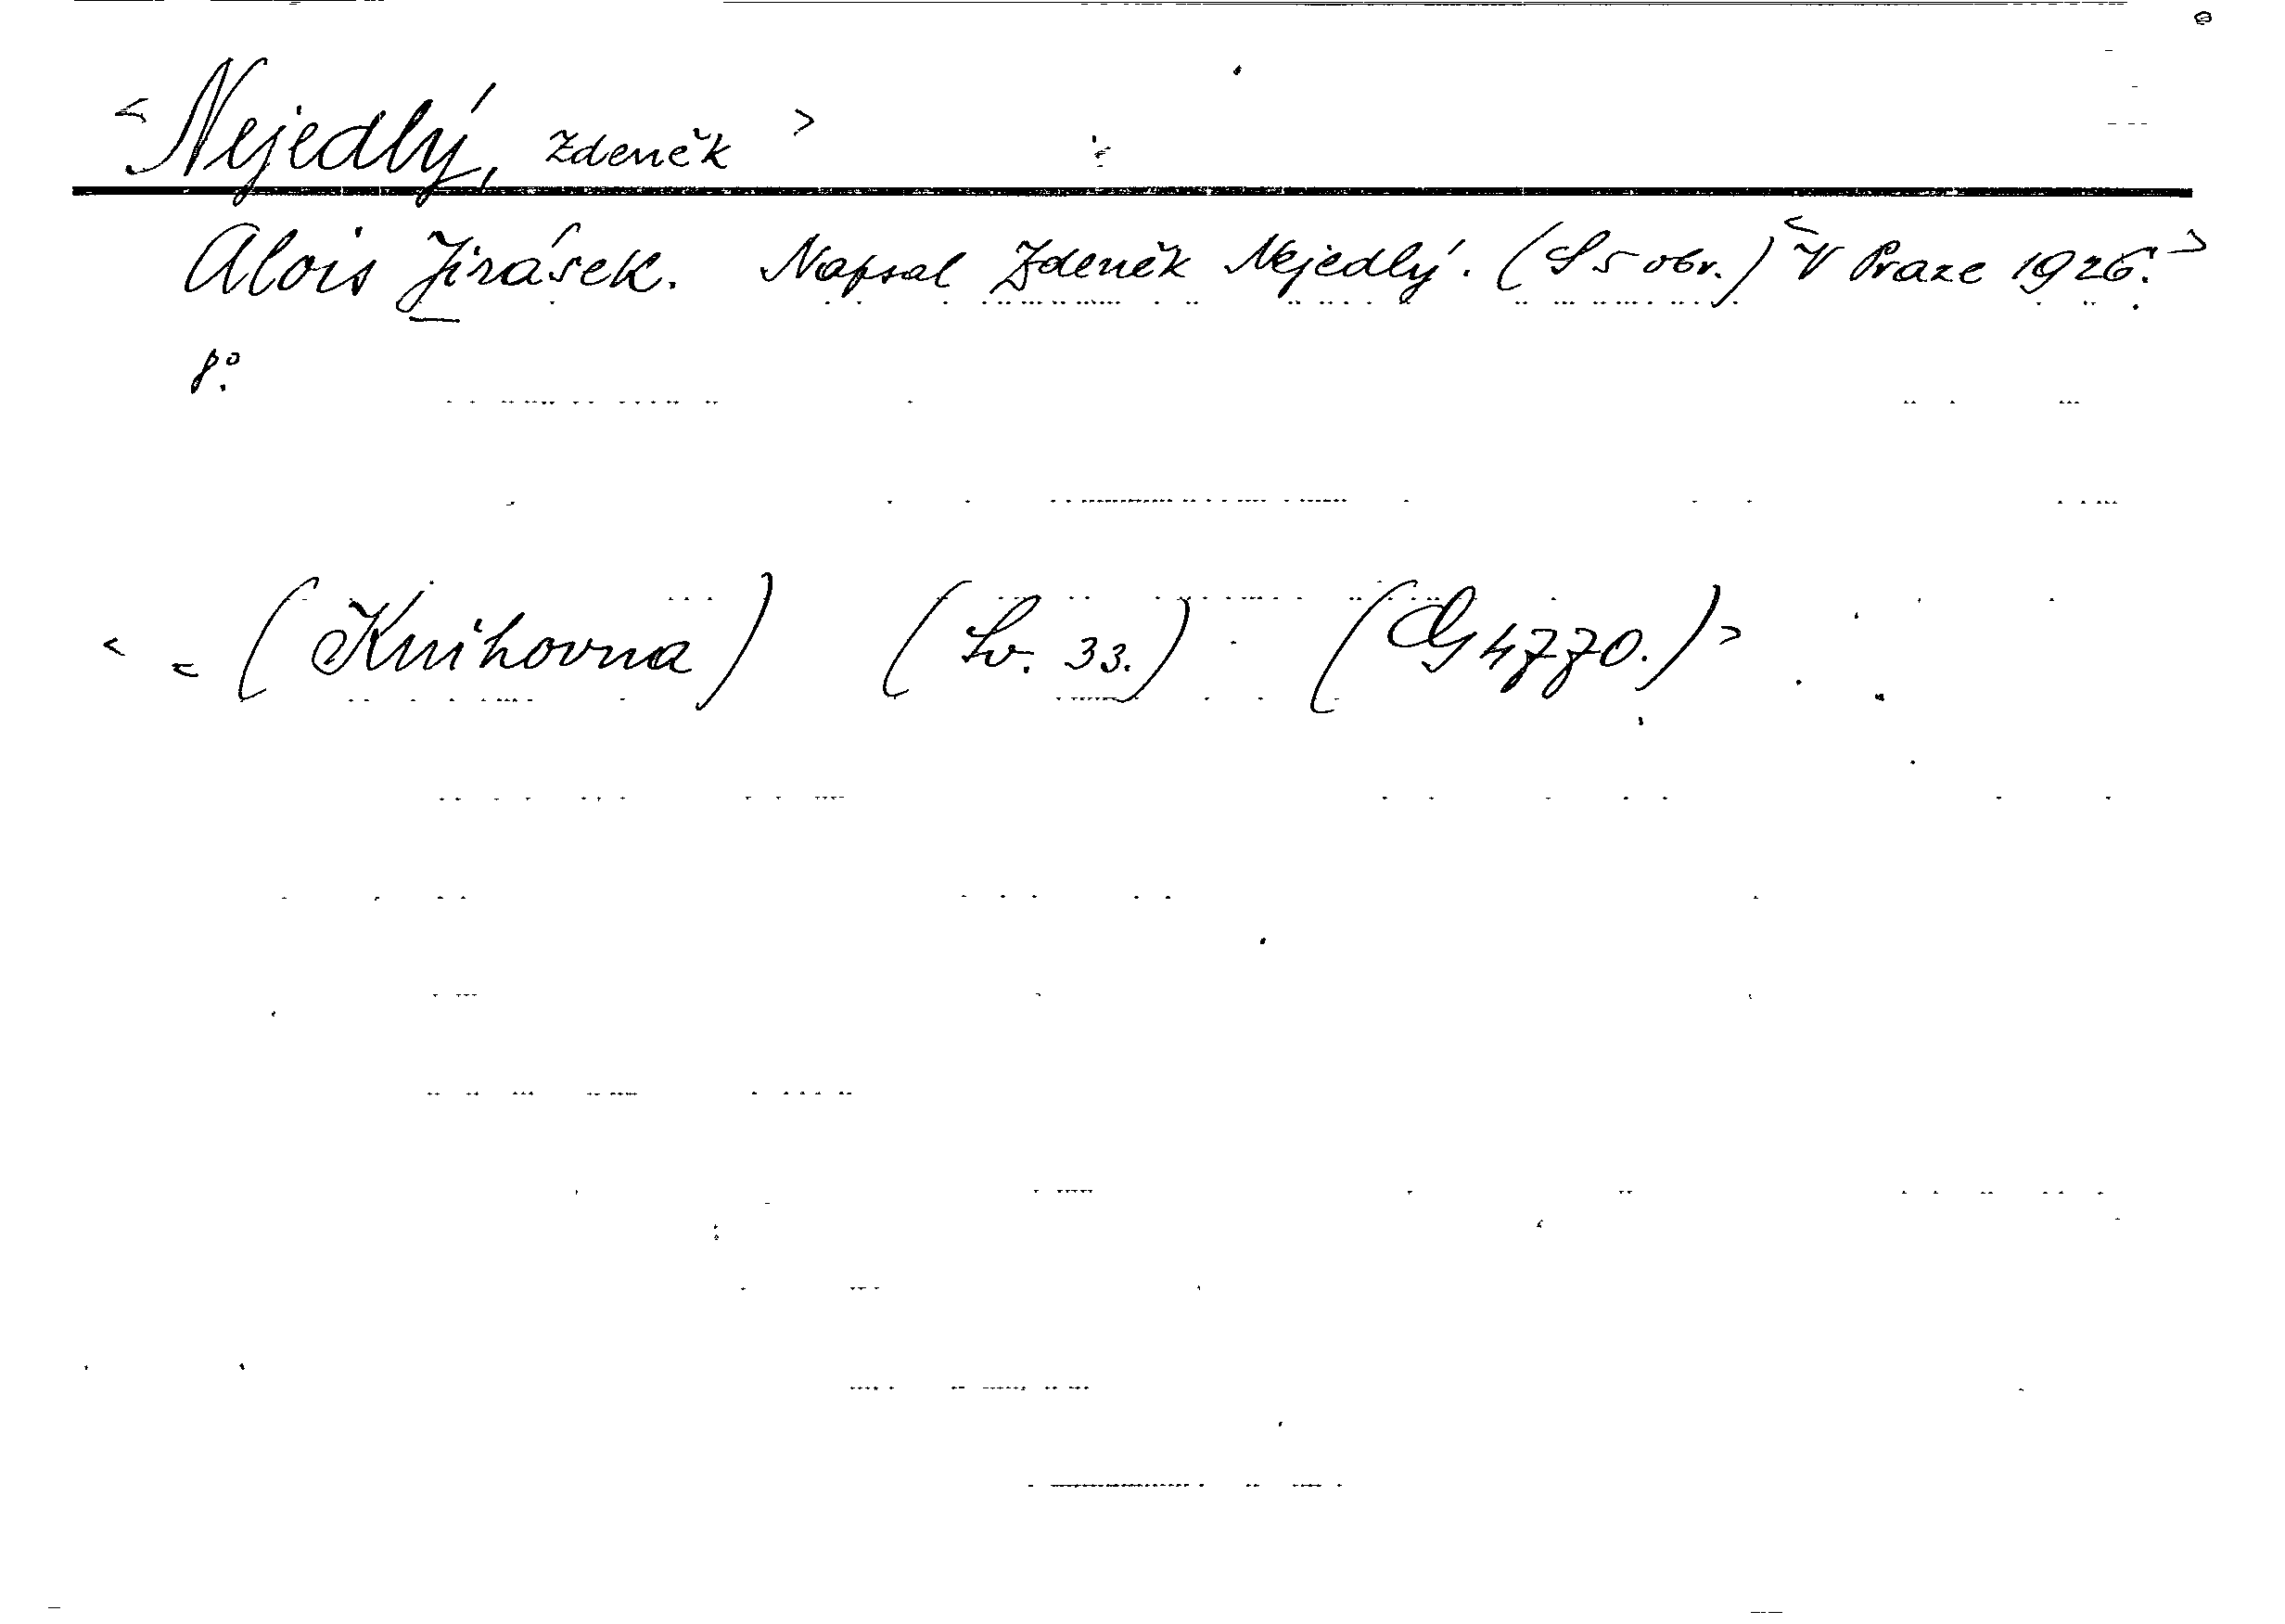 <Nejedlý, Zdeněk>
Alois Jirásek. Napsal Zdeněk Nejedlý. (S 5 obr.) <V Praze 1926.>
8°.
< = (Knihovna) (Sv. 33.) (G 4770.)>